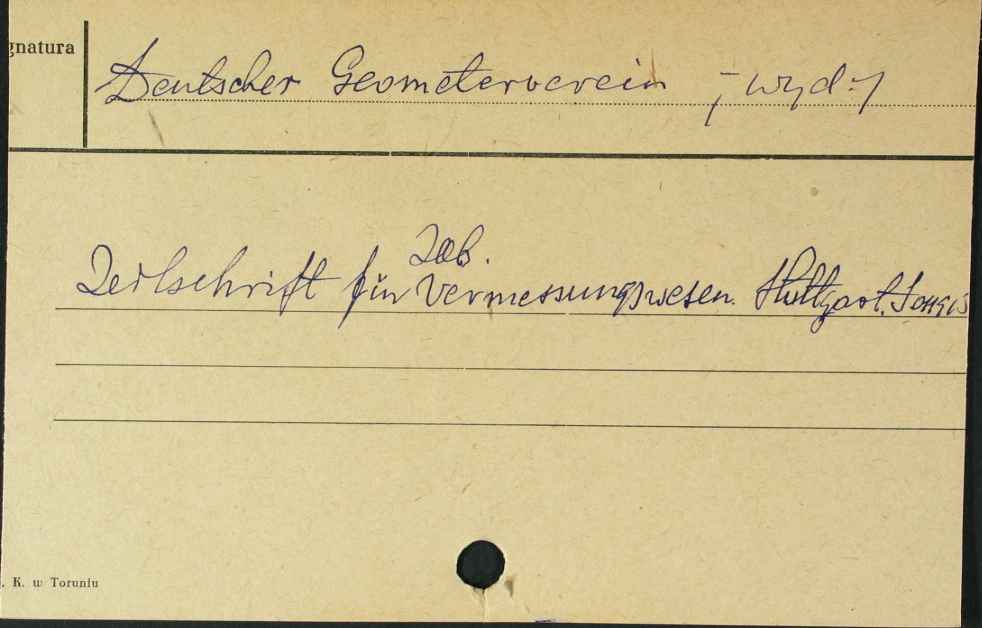 gnatura
Deutscher Geometerverein /-wyd-/
Zob.
Zeitschrift für Vermessungswesen. Stuttgart.
. K. w Toruniu